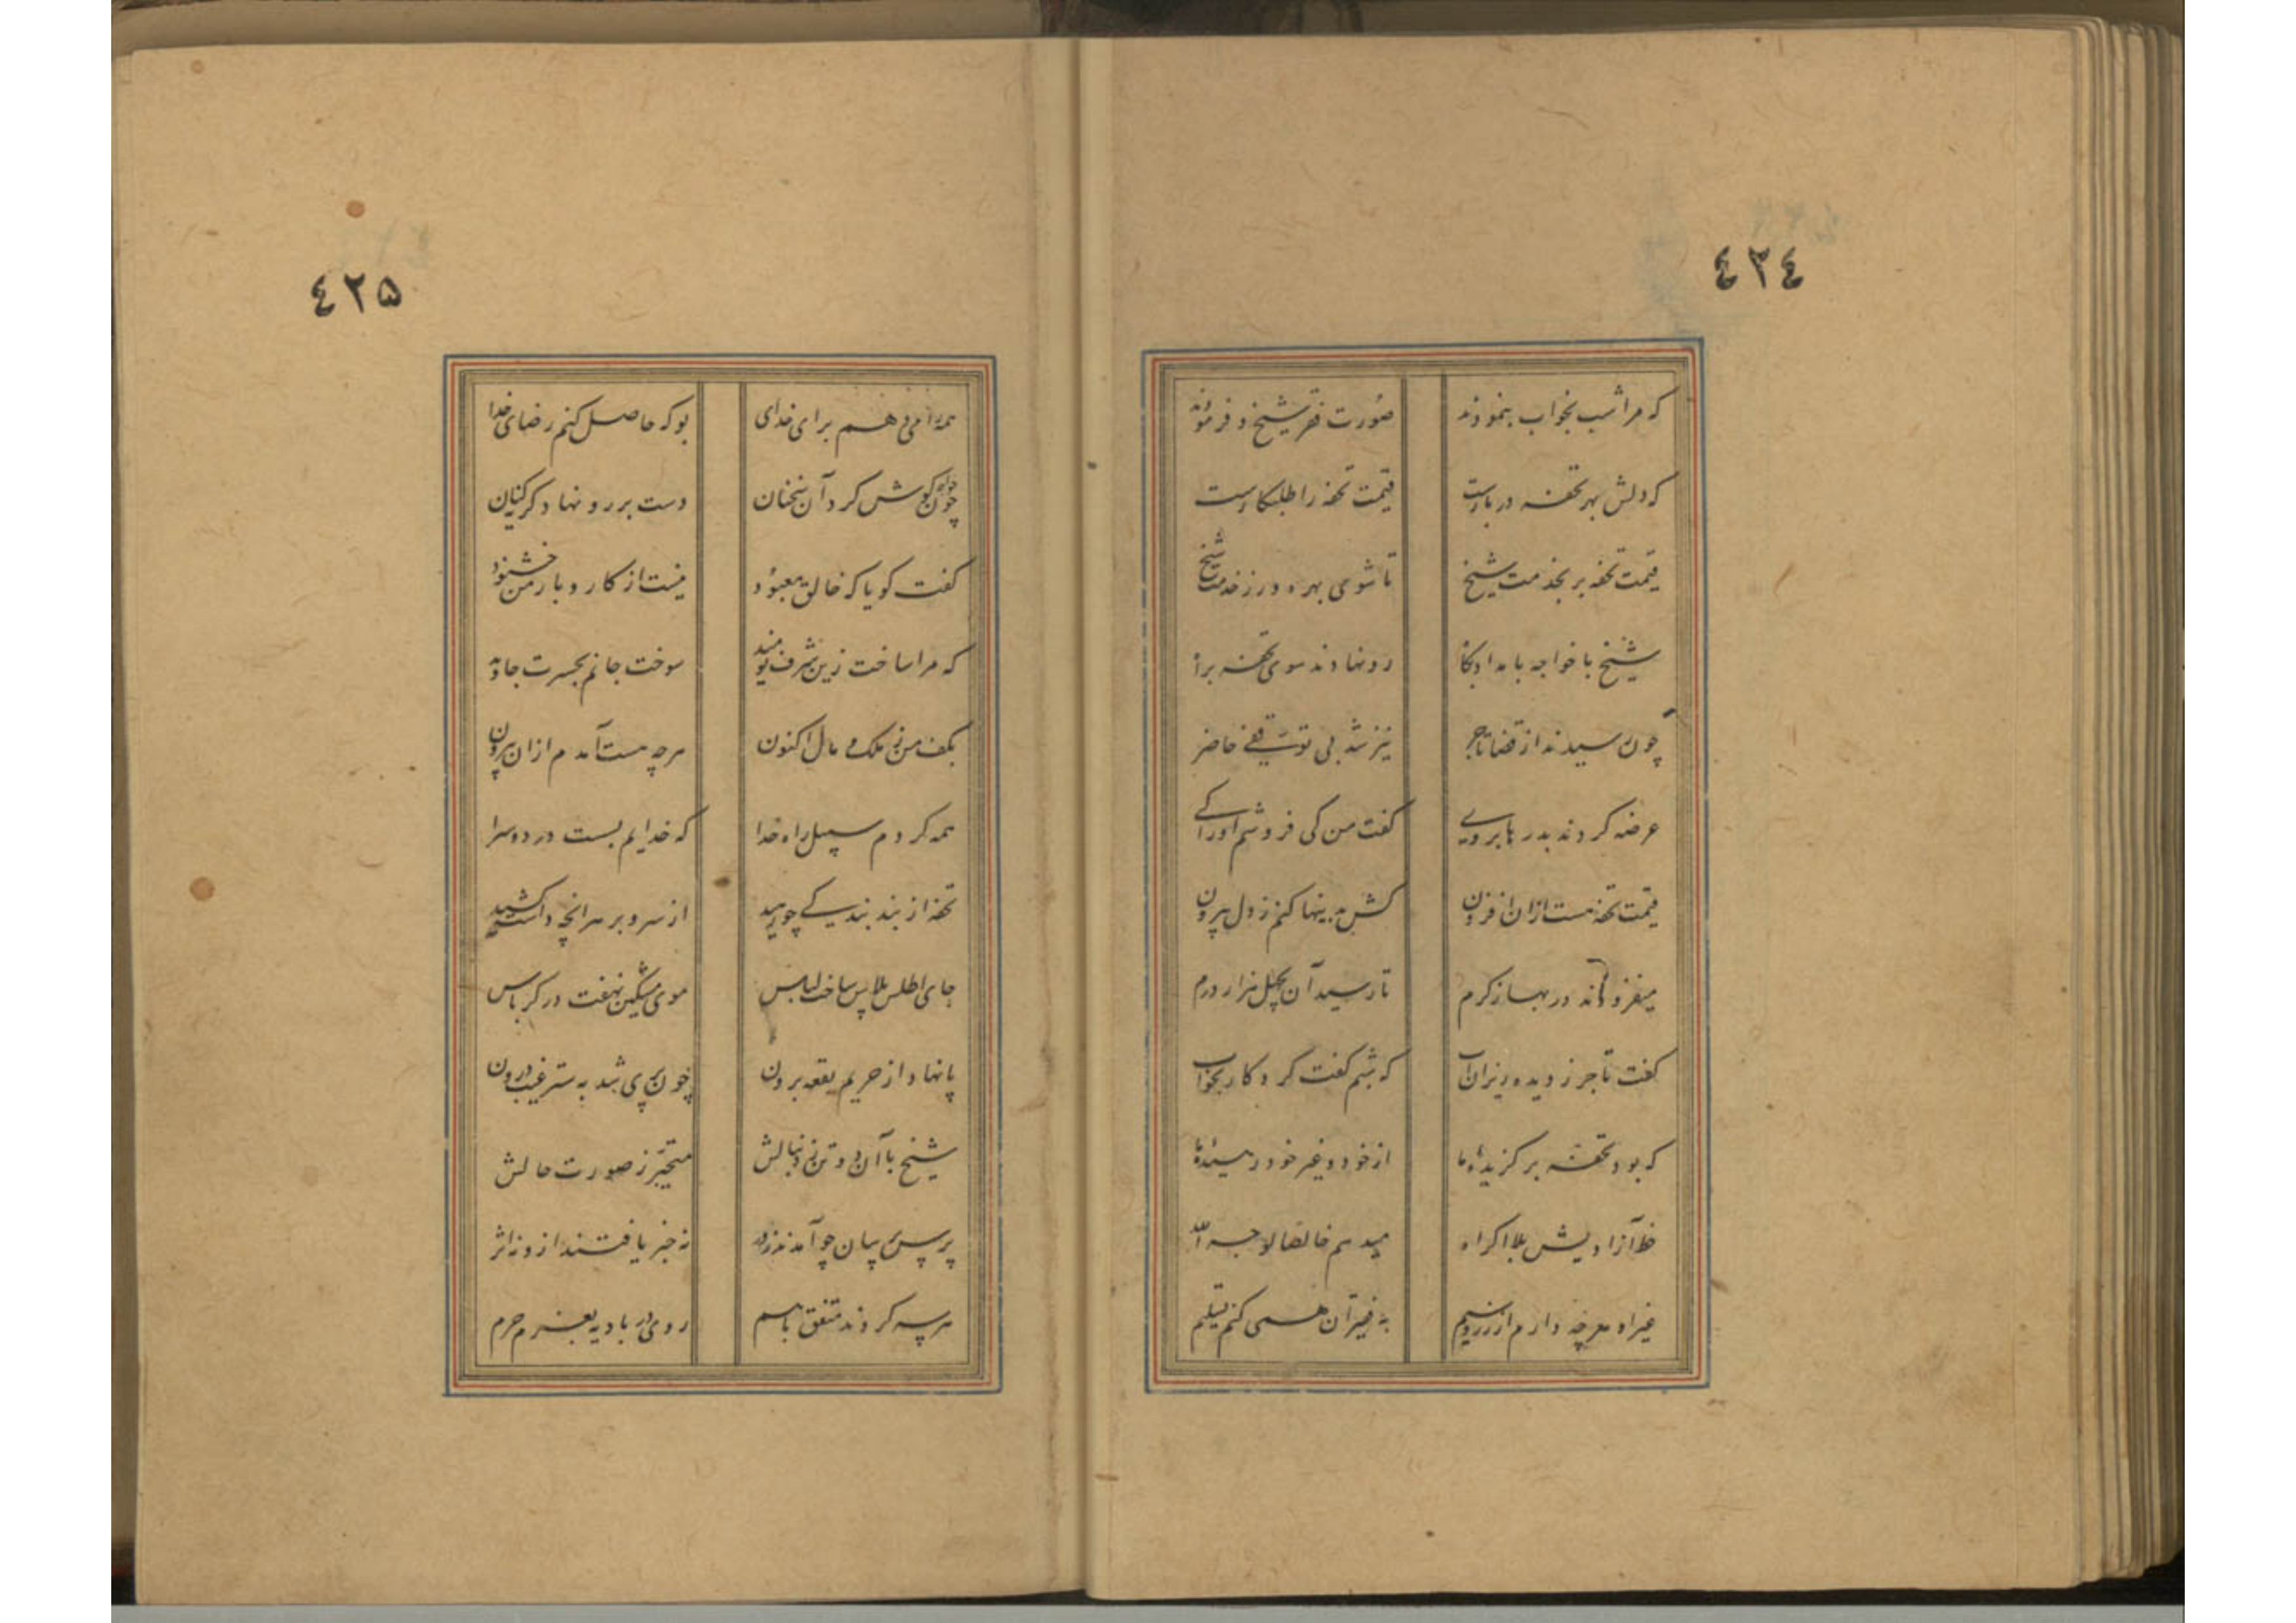 ٤٢٤
که مرا شب بخواب بنمودند صورت فقر شیخ و فرمودند
که دلش بهر تحفه در بارست قیمت تحفه را طلبکارست
قیمت تحفه بر بخدمت شیخ تا شوی بهره ور ز خدمت شیخ
شیخ با خواجه بامداد پگاه رو نهادند سوی تحفه براه
چون رسیدند از قضا تاجر نیز شد بی توقفی حاضر
عرضه کردند بدرها بر وی گفت من کی فروشم او را کی
قیمت تحفه هست ازان افزون کش بدینها کنم ز دل بیرون
میفزودند در بها ز کرم تا رسید آن بچل هزار درم
گفت تاجر ز دیده ریزان آب که شبم گفت کردکار بخواب
که بود تحفه برگزیده ما از خود و غیر خود رمیده ما
خط آزادیش بلا اکراه میدهم خالصا لوجه الله
غیر او هرچه دارم از زر و سیم به فقیران همی کنم تسلیم
٤٢۵
همه را می دهم برای خدای بو که حاصل کنم رضای خدا
خواجه چون گوش کرد آن سخنان دست بر رو نهاد گریه کنان
گفت گویا که خالق معبود نیست از کار و بار من خشنود
که مرا ساخت زین شرف نومید سوخت جانم بحسرت جاوید
بکف من ز ملک و مال اکنون هرچه هست آمدم ازان بیرون
همه کردم سبیل راه خدا که خدایم بست در دو سرا
تحفه از بند بندگی چو رهید از سر و بر هرانچه داشت کشید
جای اطلس پلاس ساخت لباس موی مشکین نهفت در کرباس
پا نهاد از حریم بقعه برون چون پری شد به ستر غیب درون
شیخ با آن دو تن ز دنبالش متحیر ز صورت حالش
پرس پرسان چو آمدند بدر نه خبر یافتند ازو نه اثر
هر سه کردند متفق باهم روی در بادیه بعزم حرم